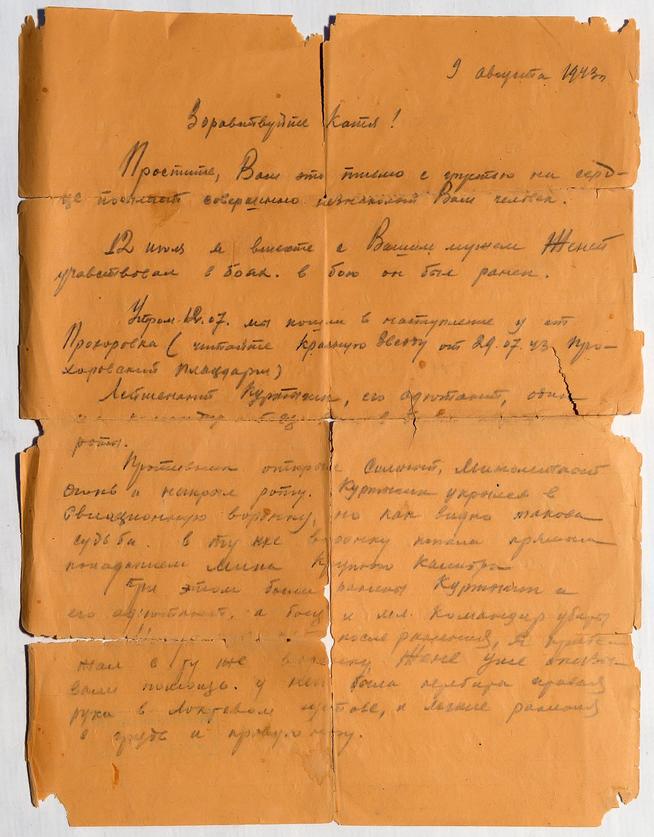 9 августа 1943г
Здравствуйте Катя!
Простите, Вам это письмо с грустью на серд-
це посылает совершенно незнакомый Вам человек.
12 июля я вместе с Вашим мужем Женей
учавствовал в боях. в бою он был ранен.
Утром 12.07. мы пошли в наступление у ст
Прохоровка (читайте красную звезду от 29.07.43 Про-
хоровский плацдарм)
Лейтенант Куртыкин, его адютант, один
роты.
Противник открыл сильный, минометный
огонь и накрыл роту. укрылся в
авиационную воронку, но как видно такова
судьба. в ту же воронку попала прямым
попаданием мина крупного калибра
При этом были ранены и
его адютант, а боец и мл. командир убиты
после ранения, я прибе-
жал в ту же воронку Жене уже оказы-
вали помощь. у него была перебита правая
рука в локтевом суставе, и легкие ранения
в грудь и правую ногу.